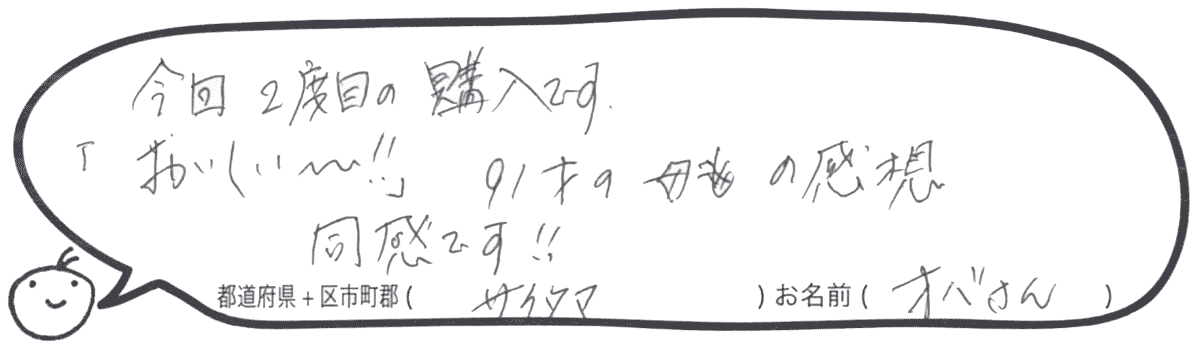 今回2度目の購入です.
「おいしい〜〜!!」 91才の母の感想
同感です!!
都道府県+区市町郡( サイタマ )お名前( オバさん )